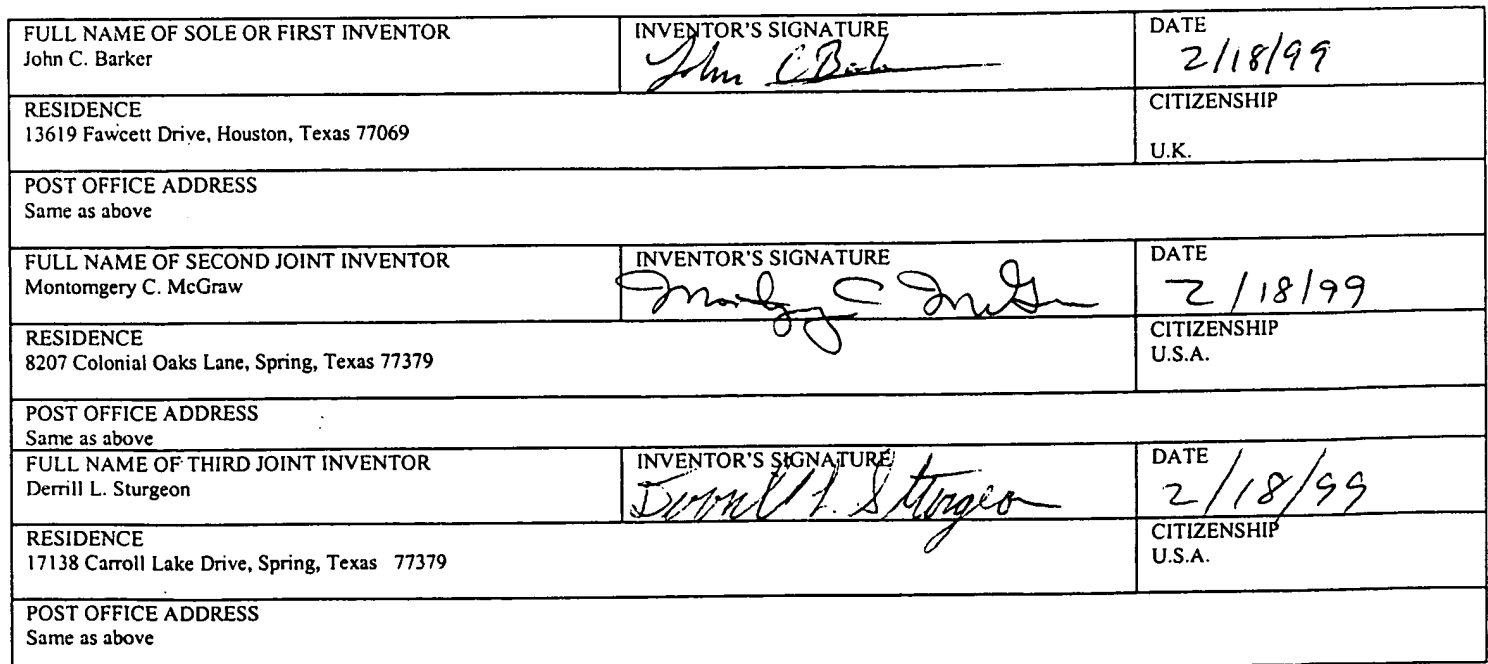 FULL NAME OF SOLE OR FIRST INVENTOR
John C. Barker
INVENTOR'S SIGNATURE
John C Barker
DATE
2/18/99
RESIDENCE
13619 Fawcett Drive, Houston, Texas 77069
CITIZENSHIP
U.K.
POST OFFICE ADDRESS
Same as above
FULL NAME OF SECOND JOINT INVENTOR
Montomgery C. McGraw
INVENTOR'S SIGNATURE
DATE
2/18/99
RESIDENCE
8207 Colonial Oaks Lane, Spring, Texas 77379
CITIZENSHIP
U.S.A.
POST OFFICE ADDRESS
Same as above
FULL NAME OF THIRD JOINT INVENTOR
Derrill L. Sturgeon
INVENTOR'S SIGNATURE
Derrill L. Sturgeon
DATE
2/18/99
RESIDENCE
17138 Carroll Lake Drive, Spring, Texas 77379
CITIZENSHIP
U.S.A.
POST OFFICE ADDRESS
Same as above